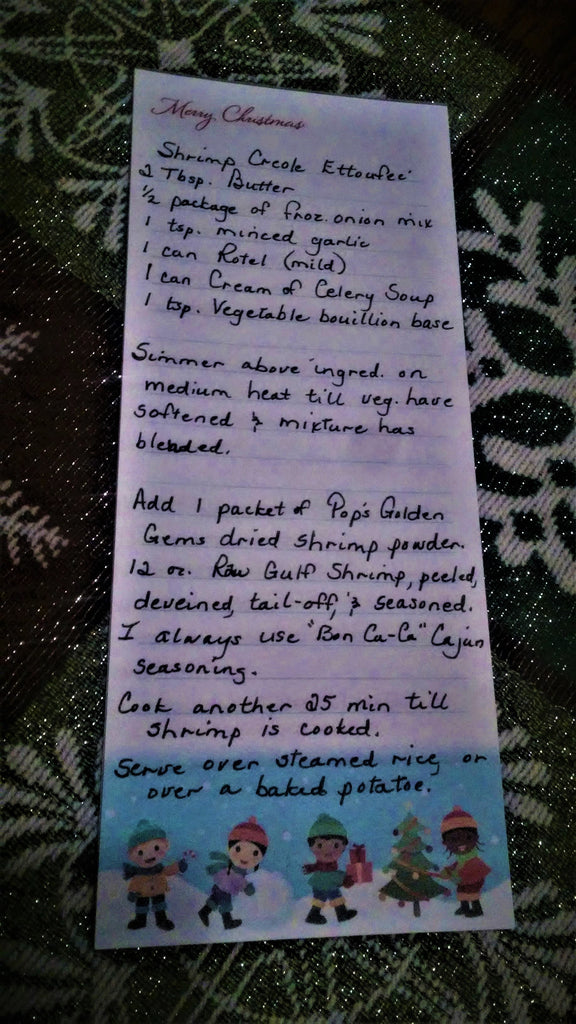 Merry Christmas
Shrimp Creole Ettoufeé
2 Tbsp. Butter
1/2 package of froz. onion mix
1 tsp. minced garlic
1 can Rotel (mild)
1 can Cream of Celery Soup
1 tsp. Vegetable bouillion base
Simmer above ingred. on
medium heat till veg. have
softened & mixture has
blended.
Add 1 packet of Pop's Golden
Gems dried shrimp powder.
12 oz. Raw Gulf Shrimp, peeled,
deveined, tail-off, & seasoned.
I always use "Bon Ca-Ca" Cajun
seasoning.
Cook another 25 min till
shrimp is cooked.
Serve over steamed rice, or
over a baked potatoe.